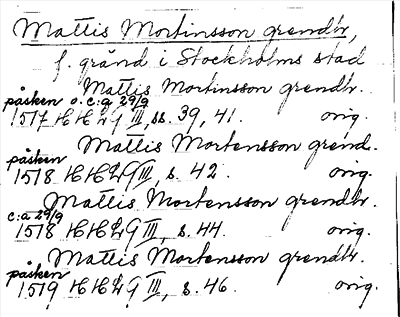 Mattis Mortinsson grendtr,
f. gränd i Stockholms stad
Mattis Mortinsson grendtr.
påsken o. c:a 29/9
1517 HH 29 III, ss. 39, 41. orig.
Mattis Mortensson grend.
påsken
1518 HH 29 III, s. 42. orig.
Mattis Mortensson grendtr.
c:a 29/9
1518 HH 29 III, s. 44. orig.
Mattis Mortensson grendtr.
påsken
1519 HH 29 III, s. 46. orig.